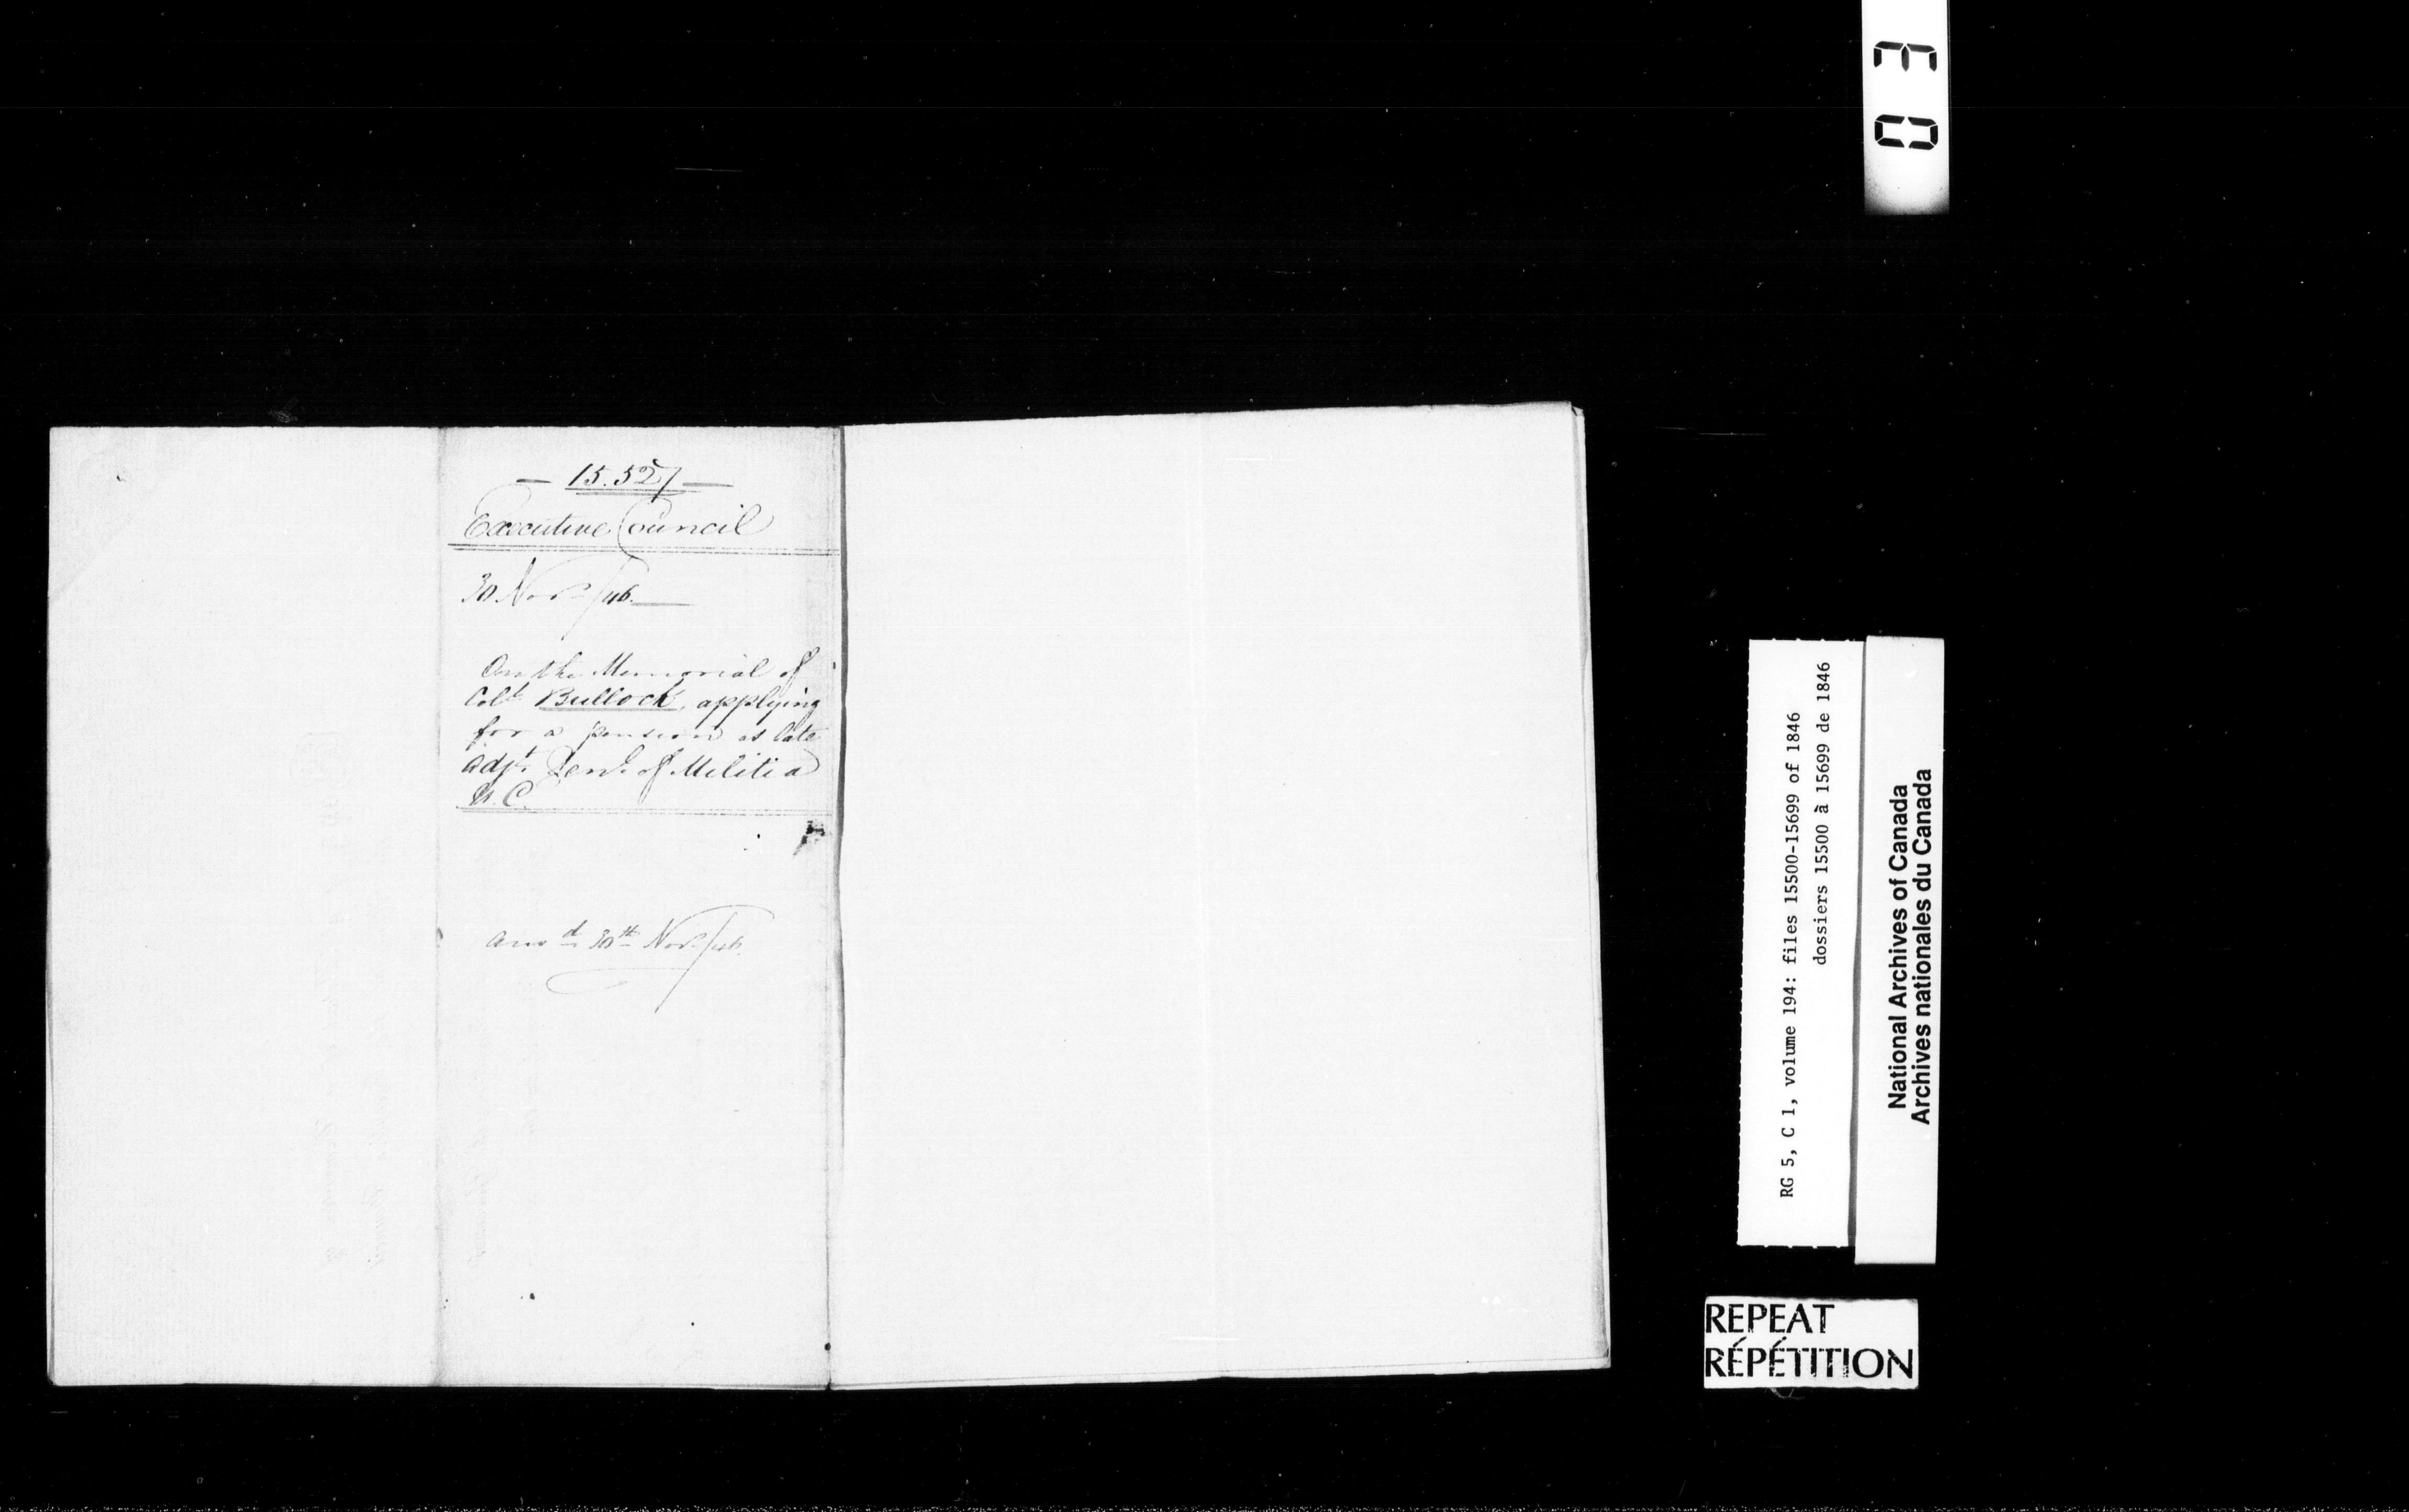 — 15.527 —
Executive Council
30 Novr /46.
On the Memorial of
Coll. Bullock, applying
for a pension as late
Adjt. Genl. of Militia
U.C.
Ansd 30th Novr /46.
03
RG 5, C 1, volume 194: files 15500-15699 of 1846
dossiers 15500 à 15699 de 1846
National Archives of Canada
Archives nationales du Canada
REPEAT
RÉPÉTITION